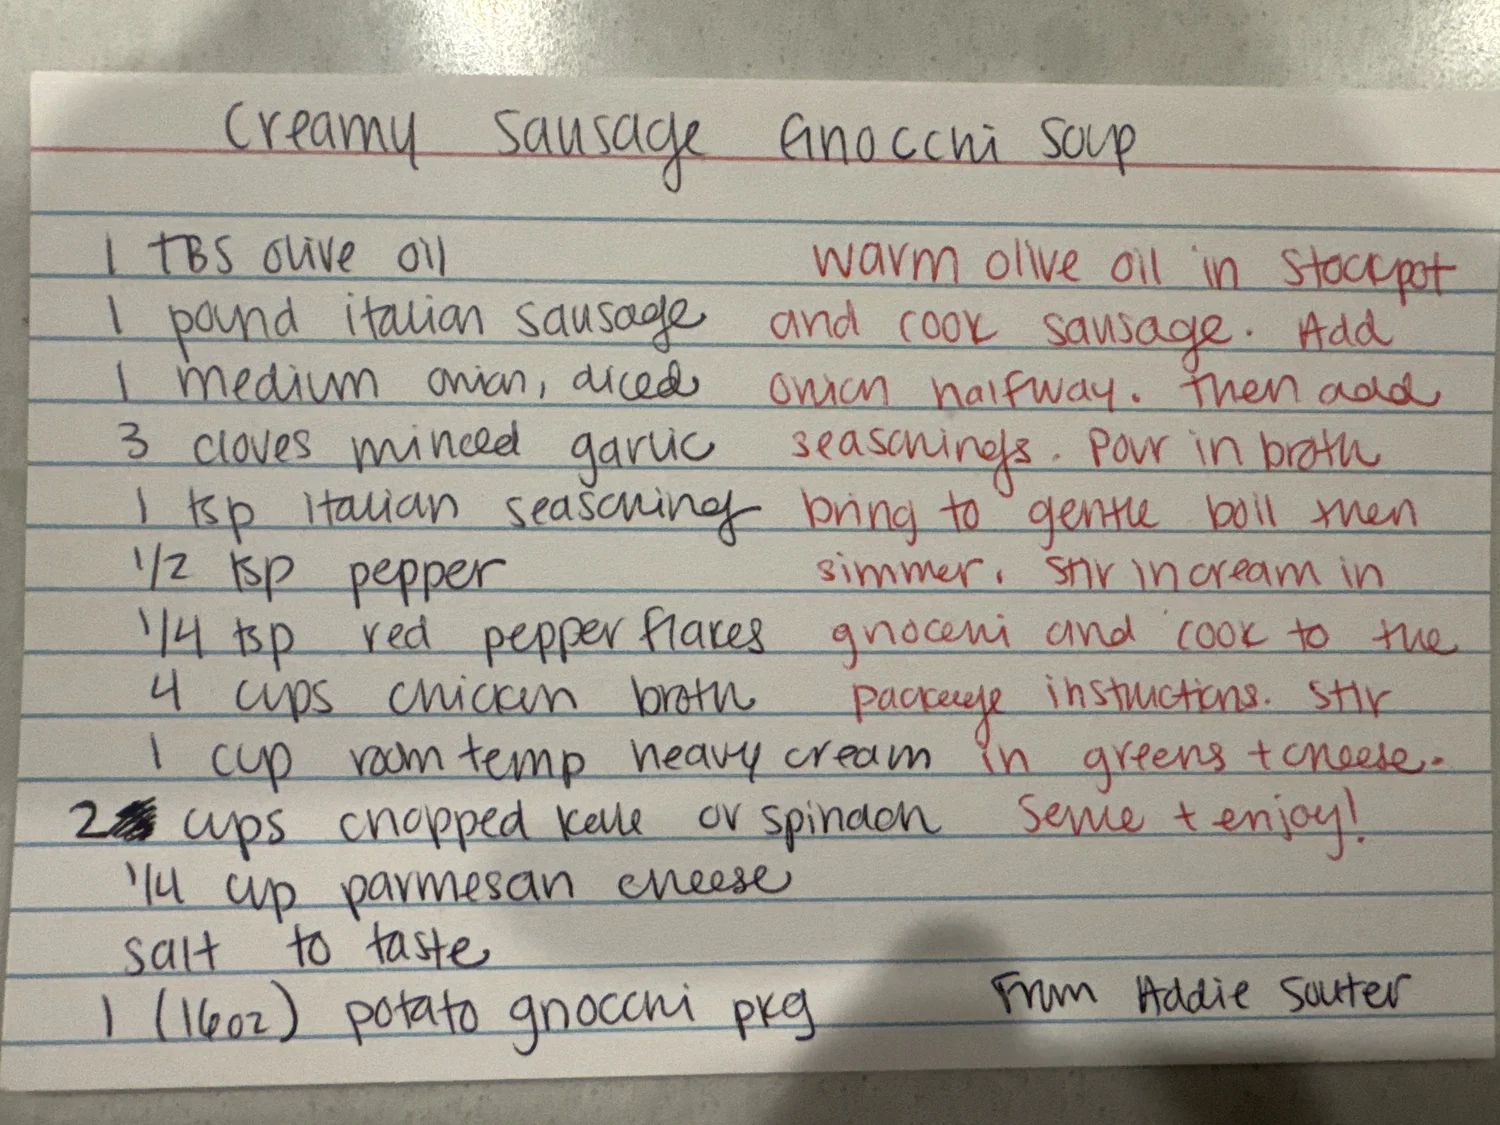 Creamy Sausage Gnocchi Soup
1 TBS olive oil
1 pound italian sausage
1 medium onion, diced
3 cloves minced garlic
1 tsp italian seasoning
1/2 tsp pepper
1/4 tsp red pepper flakes
4 cups chicken broth
1 cup room temp heavy cream
2 cups chopped kale or spinach
1/4 cup parmesan cheese
salt to taste
1 (16oz) potato gnocchi pkg
warm olive oil in stockpot
and cook sausage. Add
onion halfway. Then add
seasonings. Pour in broth
bring to gentle boil then
simmer. Stir in cream in
gnocchi and cook to the
package instructions. Stir
in greens + cheese.
Serve + enjoy!
From Addie Souter